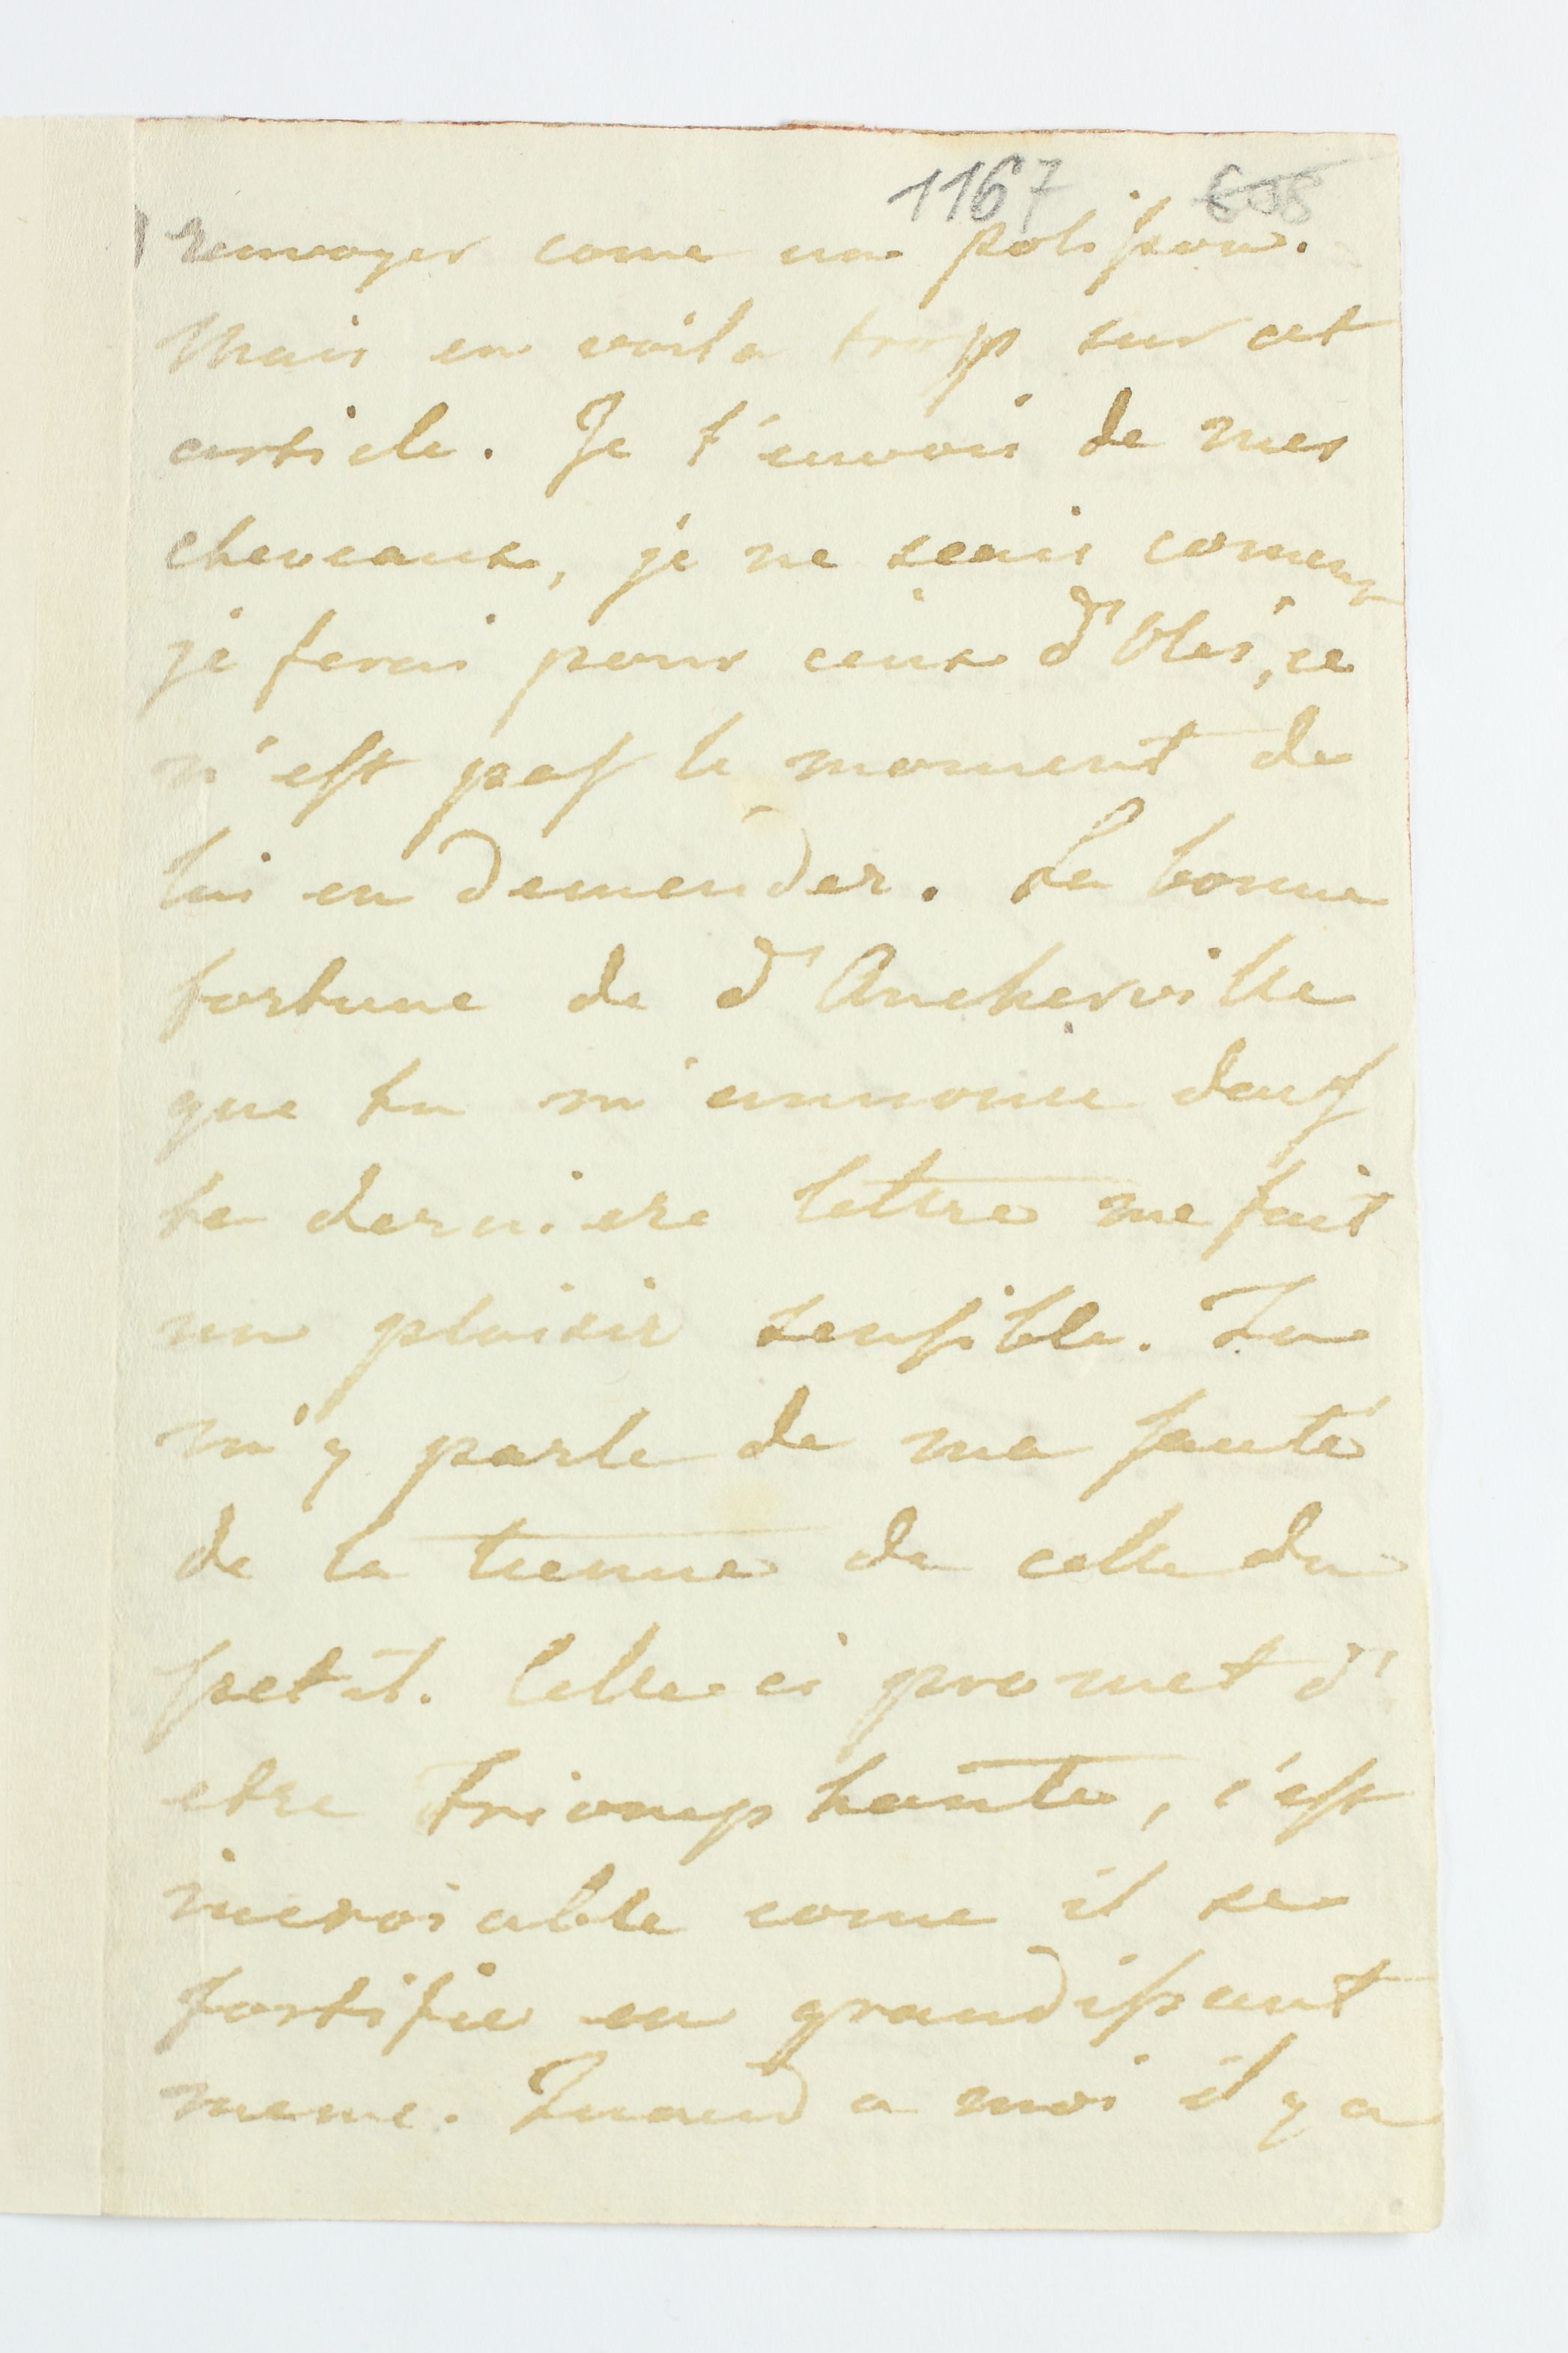 1167 608
renvoyer come un polisson.
Mais en voila trop sur cet
article. Je t'envois de mes
cheveaux, je ne scais coment
je ferai pour ceux d'Oles', ce
n'est pas le moment de
lui en demender. La bonne
fortune de d'Ancherville
que tu m'annonce dans
ta derniere lettre me fait
un plaisir sensible. Tu
m'y parle de ma santé
de la tienne de celle du
petit. Celle ci promet d'
etre triomphante, c'est
incroiable come il se
fortifie en grandissant
meme. Quand a moi il y a